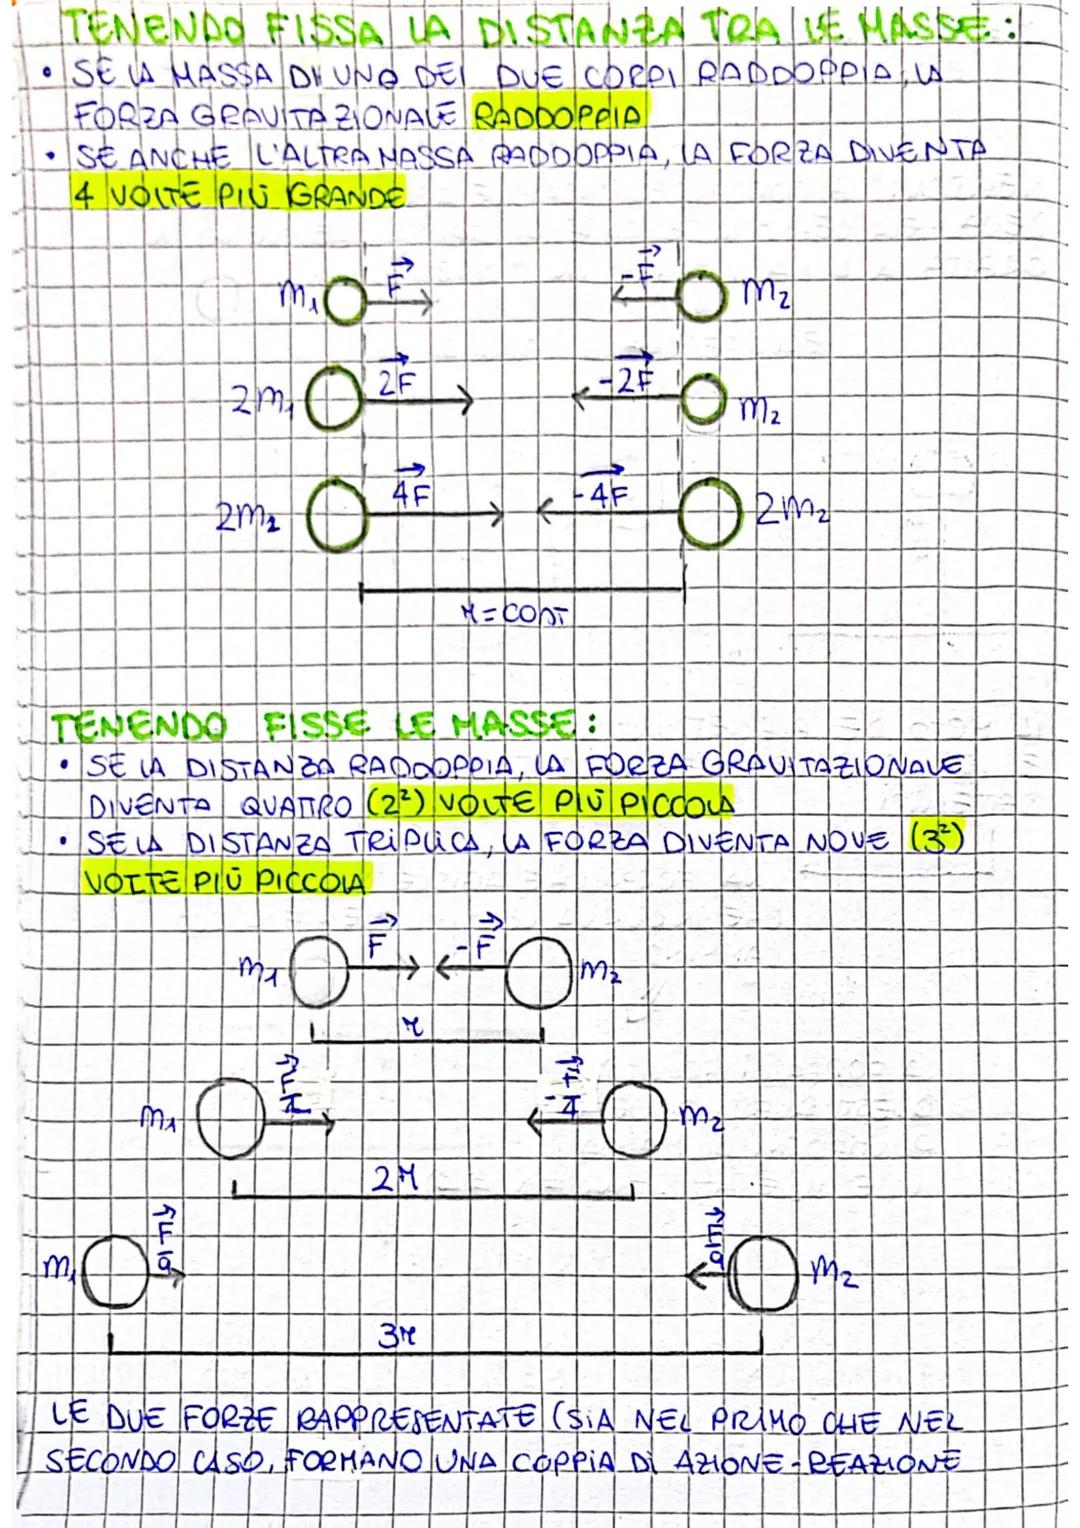 TENENDO FISSA LA DISTANZA TRA LE MASSE:
• SE LA MASSA DI UNO DEI DUE CORPI RADDOPPIA, LA
FORZA GRAVITAZIONALE RADDOPPIA
• SE ANCHE L'ALTRA MASSA RADDOPPIA, LA FORZA DIVENTA
4 VOLTE PIÙ GRANDE
m₁ F -F m₂
2m₁ 2F -2F m₂
2m₂ 4F -4F 2m₂
r = COST
TENENDO FISSE LE MASSE:
• SE LA DISTANZA RADDOPPIA, LA FORZA GRAVITAZIONALE
DIVENTA QUATTRO (2²) VOLTE PIÙ PICCOLA
• SE LA DISTANZA TRIPLICA, LA FORZA DIVENTA NOVE (3²)
VOLTE PIÙ PICCOLA
m₁ F -F m₂
r
m₁ F -F/4 m₂
2r
m₁ F/9 F/9 m₂
3r
LE DUE FORZE RAPPRESENTATE (SIA NEL PRIMO CHE NEL
SECONDO CASO, FORMANO UNA COPPIA DI AZIONE-REAZIONE